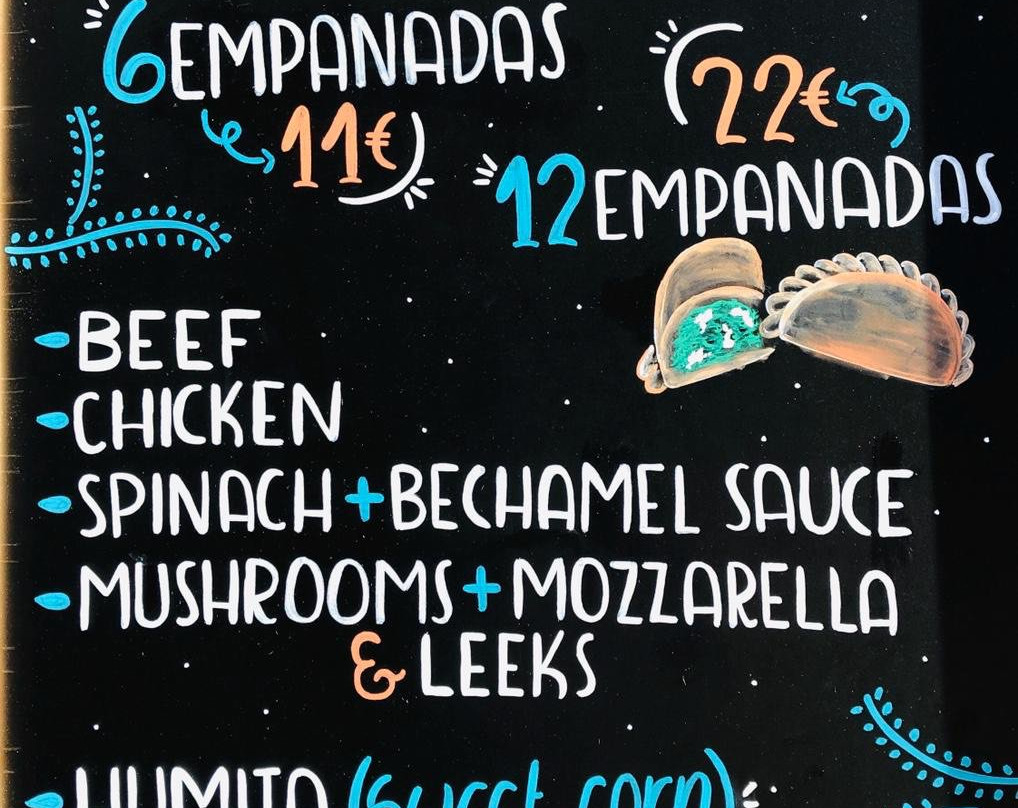 6 EMPANADAS
11€
22€
12 EMPANADAS
BEEF
CHICKEN
SPINACH + BECHAMEL SAUCE
MUSHROOMS + MOZZARELLA
& LEEKS
HUMITA (sweet corn)